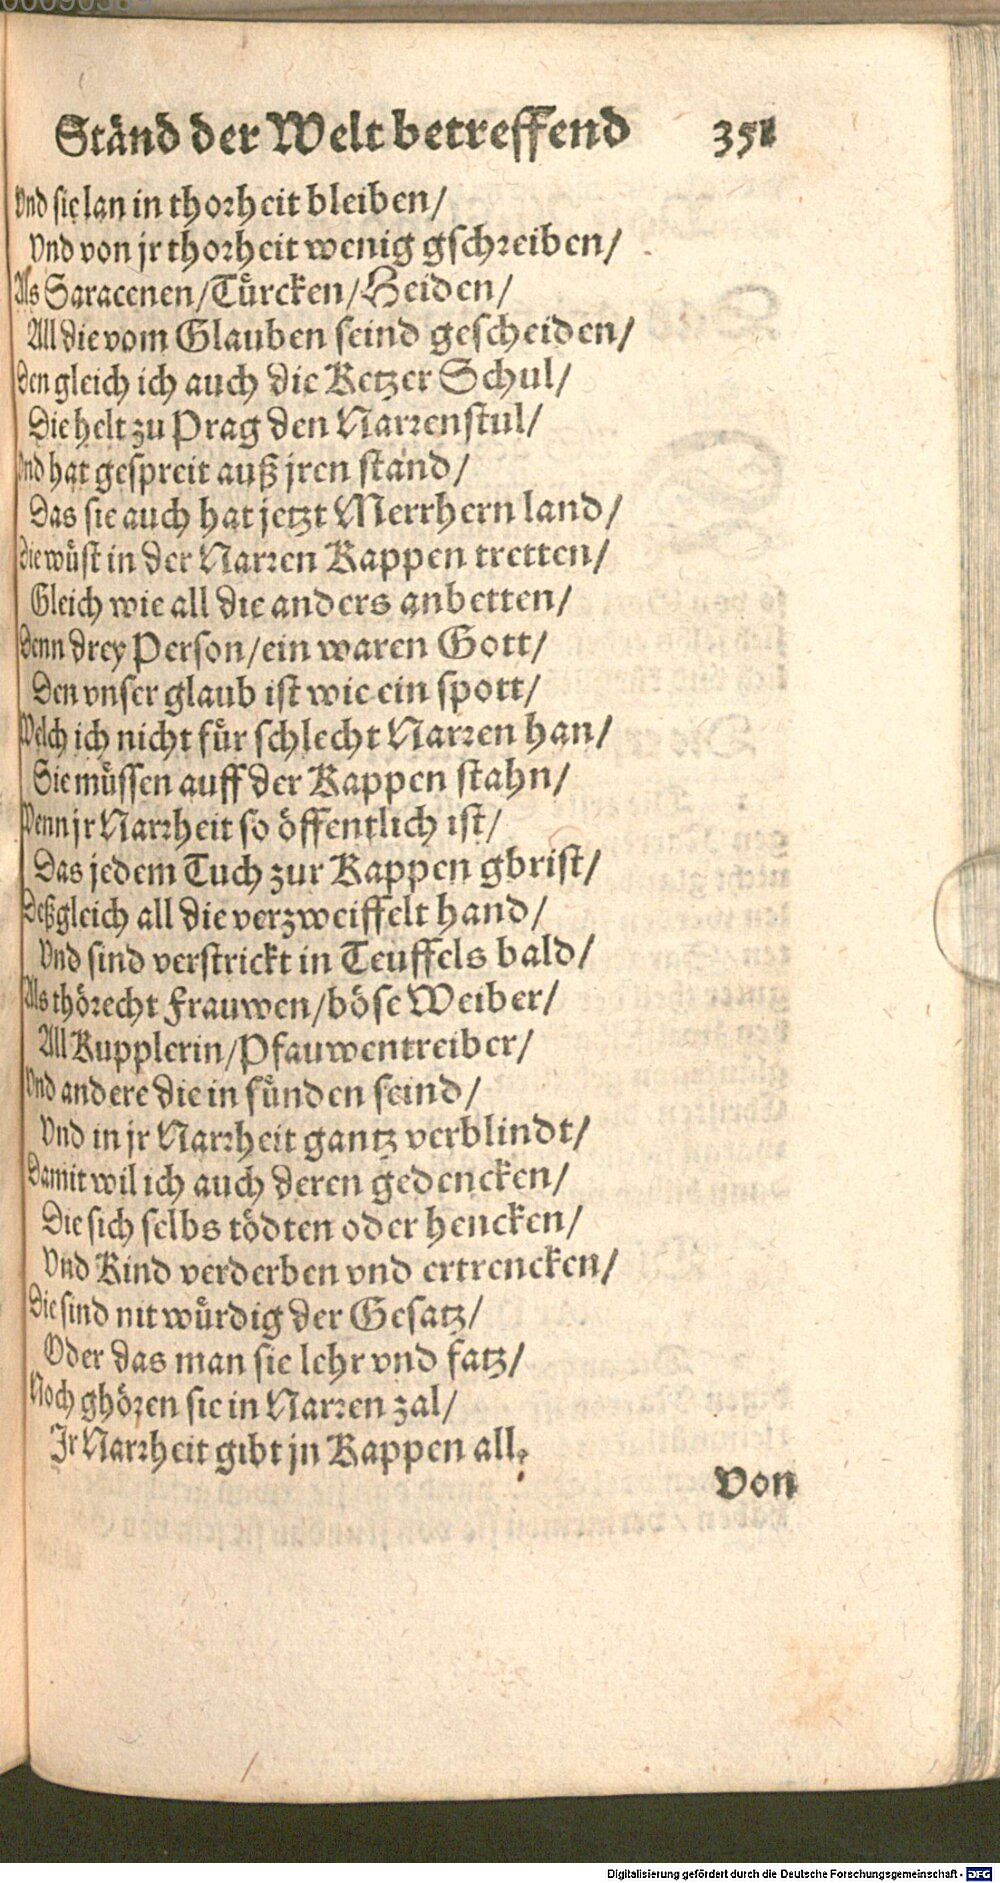 Ständ der Welt betreffend 351
Vnd sie lan in thorheit bleiben/
Vnd von jr thorheit wenig gschreiben/
Als Saracenen/Türcken/Heiden/
All die vom Glauben seind gescheiden/
Den gleich ich auch die Ketzer Schul/
Die helt zu Prag den Narrenstul/
Vnd hat gespreit auß jren stand/
Das sie auch hat jetzt Merrhern land/
Die wüst in der Narren Kappen tretten/
Gleich wie all die anders anbetten/
Denn drey Person/ein waren Gott/
Den vnser glaub ist wie ein spott/
Welch ich nicht für schlecht Narren han/
Sie müssen auff der Kappen stahn/
Wenn jr Narrheit so öffentlich ist/
Das jedem Tuch zur Kappen gbrist/
Deßgleich all die verzweiffelt hand/
Vnd sind verstrickt in Teuffels bald/
Als thörecht Frauwen/böse Weiber/
All Kupplerin/Pfauwentreiber/
Vnd andere die in sünden seind/
Vnd in jr Narrheit gantz verblindt/
Damit wil ich auch deren gedencken/
Die sich selbs tödten oder hencken/
Vnd Kind verderben vnd ertrencken/
Die sind nit würdig der Gesatz/
Oder das man sie lehr vnd fatz/
Noch ghören sie in Narren zal/
Jr Narrheit gibt jn Kappen all.
Von
Digitalisierung gefördert durch die Deutsche Forschungsgemeinschaft - DFG